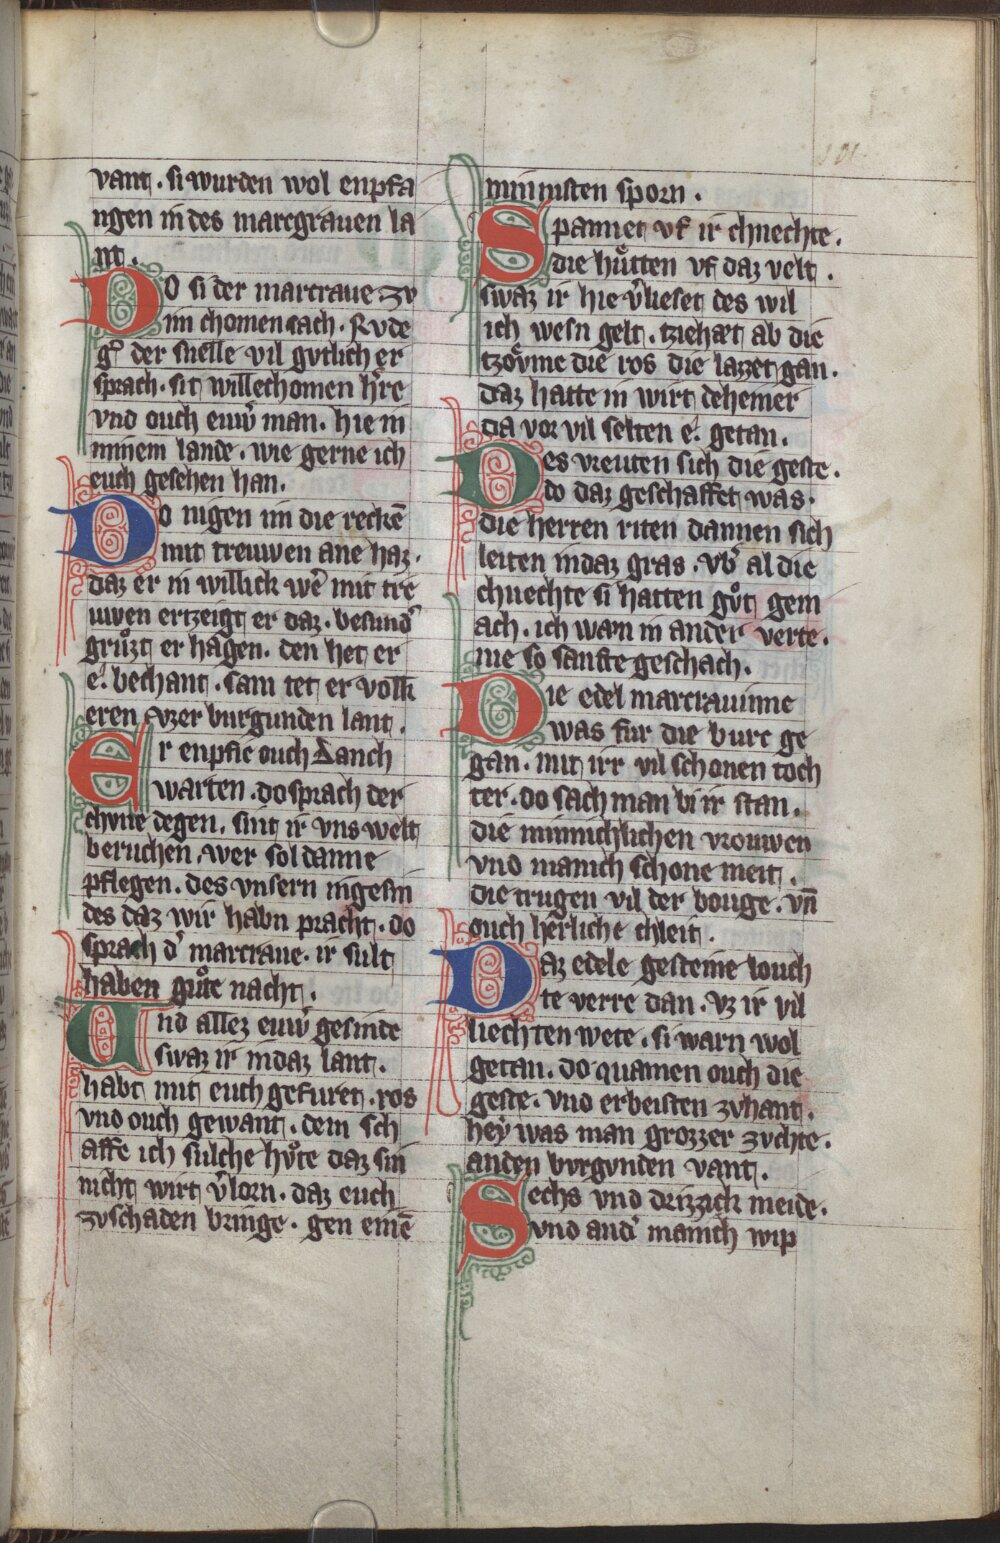 101
vant. si wurden wol enpfa
ngen in des marcgrauen la
nt.
DO si der marcraue zv
im chomen sach. Rvde
gͬ der snelle vil gvtlich er
sprach. sit willechomen hͤre
vnd ouch euwͬ man. hie in
minem lande. wie gerne ich
euch gesehen han.
Do nigen im die reckē
mit treuwen ane haz.
daz er in willick wē mit tre
uwen ertzeigt er daz. besundͬ
grůzt er hagen. den het er
e. bechant. sam tet er volk
eren vzer burgunden lant.
Er enpfie ouch Danch
warten. do sprach der
chvne degen. sint ir vns welt
beruchen. wer sol danne
pflegen. des vnsern ingesin
des daz wir habn pracht. do
sprach dͬ marcraue. ir sult
haben gůte nacht.
Und allez euwͬ gesinde
swaz ir in daz lant.
habt mit euch gefuret. ros
vnd ouch gewant. dem sch
affe ich sulche hůte daz sin
nicht wirt vͬlorn. daz euch
zvschaden bringe. gen einē
minnisten sporn.
Spannet vf ir chnechte.
die hůtten vf daz velt.
swaz ir hie vͬlieset des wil
ich wesn gelt. tziehet ab die
tzöyme die ros die lazzet gan.
daz hatte in wirt dehemer
da vor vil selten e. getan.
Des vreuten sich die geste.
do daz geschaffet was.
die herren riten dannen sich
leiten in daz gras. vbͬ al die
chnechte si hatten gůt gem
ach. ich wæn in ander verte.
nie so sanfte geschach.
Die edel marcrauinne
was fur die burc ge
gan. mit irr vil schonen toch
ter. do sach man bi ir stan.
die minnichlichen vrouwen
vnd manich schone meit.
die trugen vil der bouge. vn̄
ouch herliche chleit.
Daz edele gesteine louch
te verre dan. vz ir vil
liechten wete. si warn wol
getan. do quamen ouch die
geste. vnd erbeisten zvhant.
hey was man grozzer zvchte.
an den bvrgvnden vant.
Sechs vnd drizzick meide.
vnd andͬ manich wip